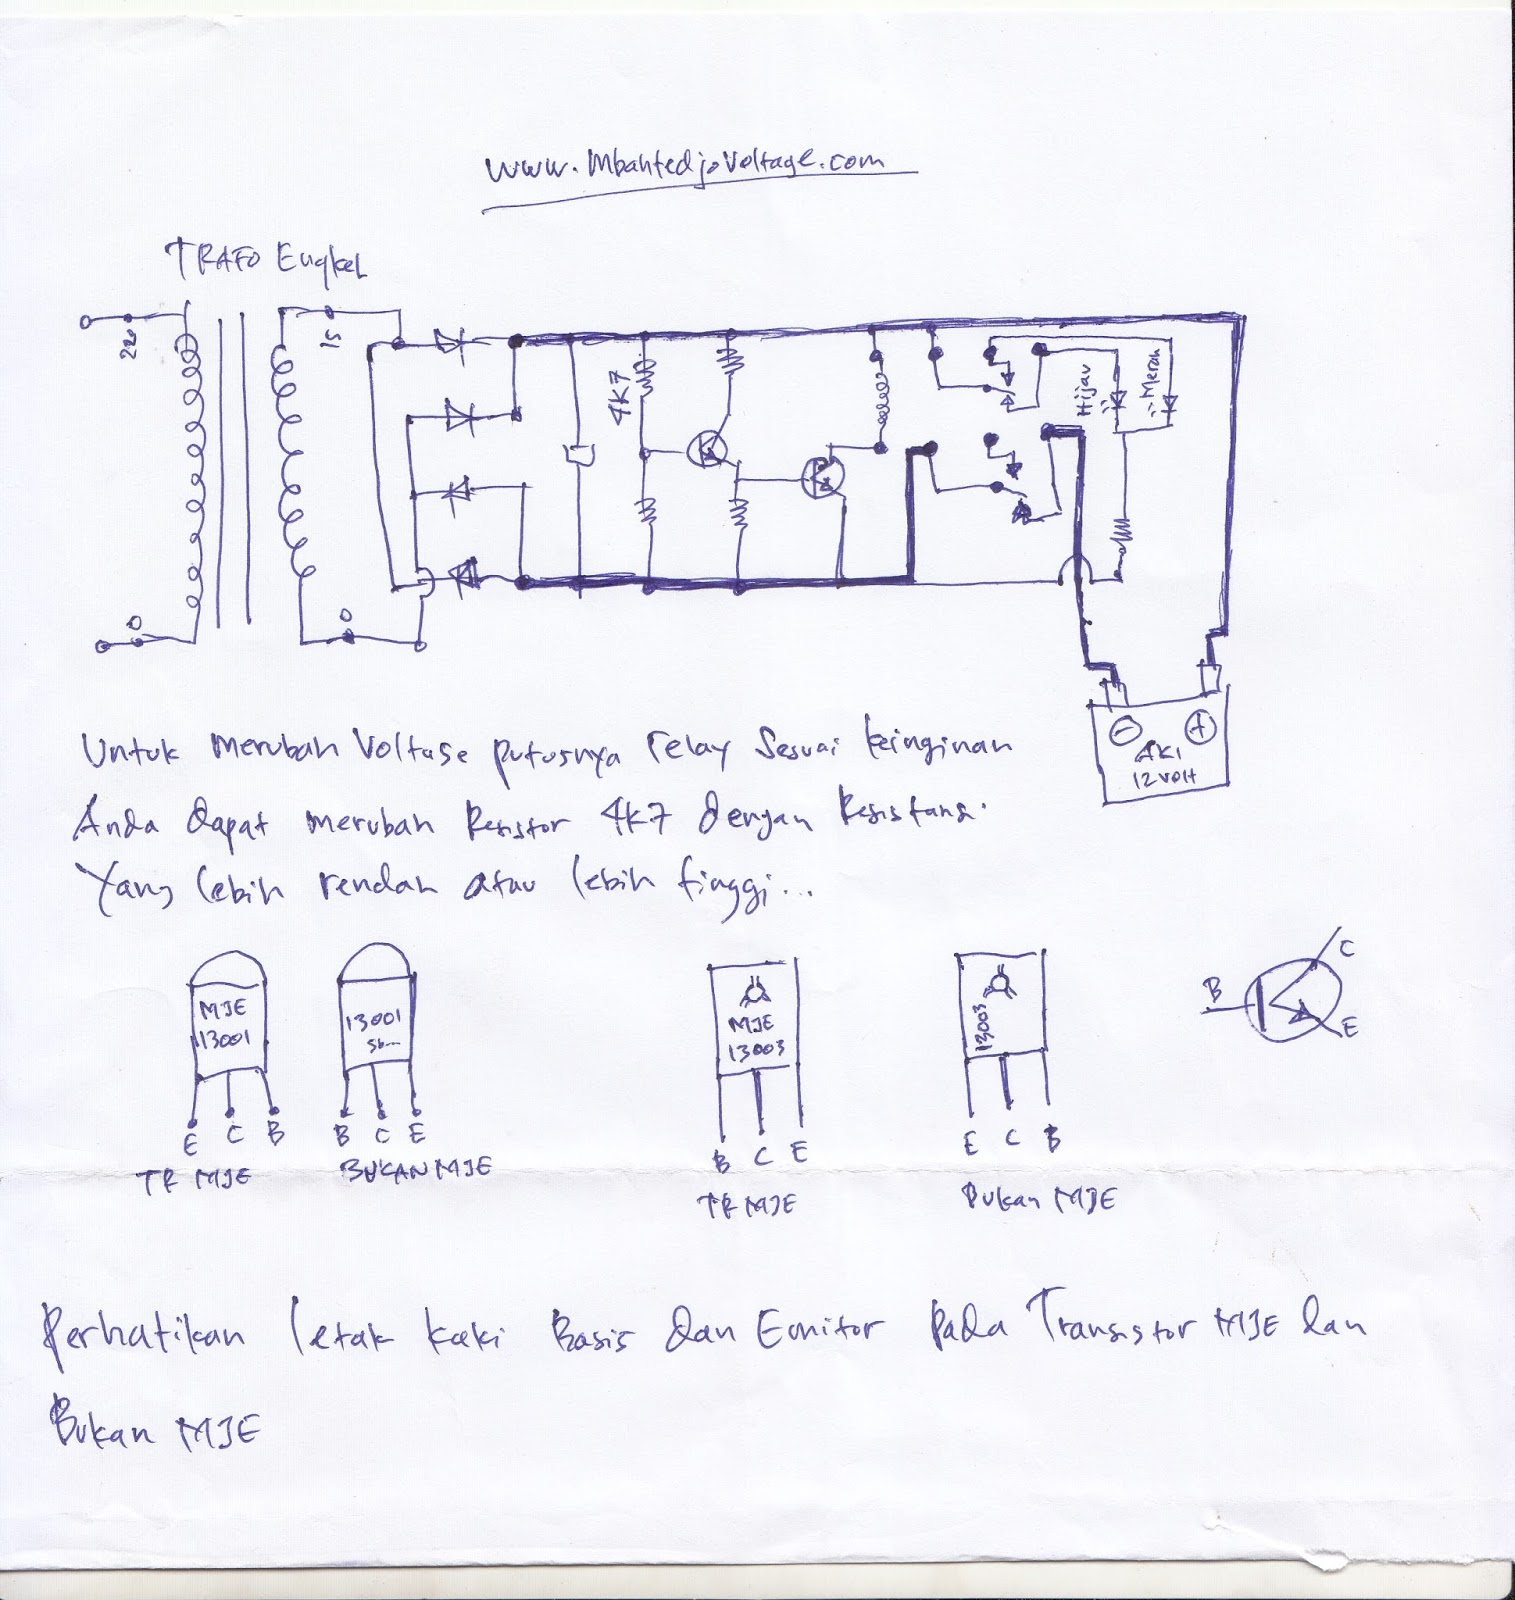 www.MbahtedjoVoltage.com
TRAFO Engkel
220
15
4K7
Hijau
Merah
0
0
- +
AKI
12 VOLT
Untuk merubah Voltase putusnya relay Sesuai keinginan
Anda dapat merubah Resistor 4K7 dengan Resistansi
Yang lebih rendah atau lebih tinggi...
MJE
13001
13001
Sb...
MJE
13003
13003
B C E
E C B
B C E
B C E
E C B
TR MJE
BUKAN MJE
TR MJE
Bukan MJE
Perhatikan letak kaki Basis dan Emitor Pada Transistor MJE dan
Bukan MJE